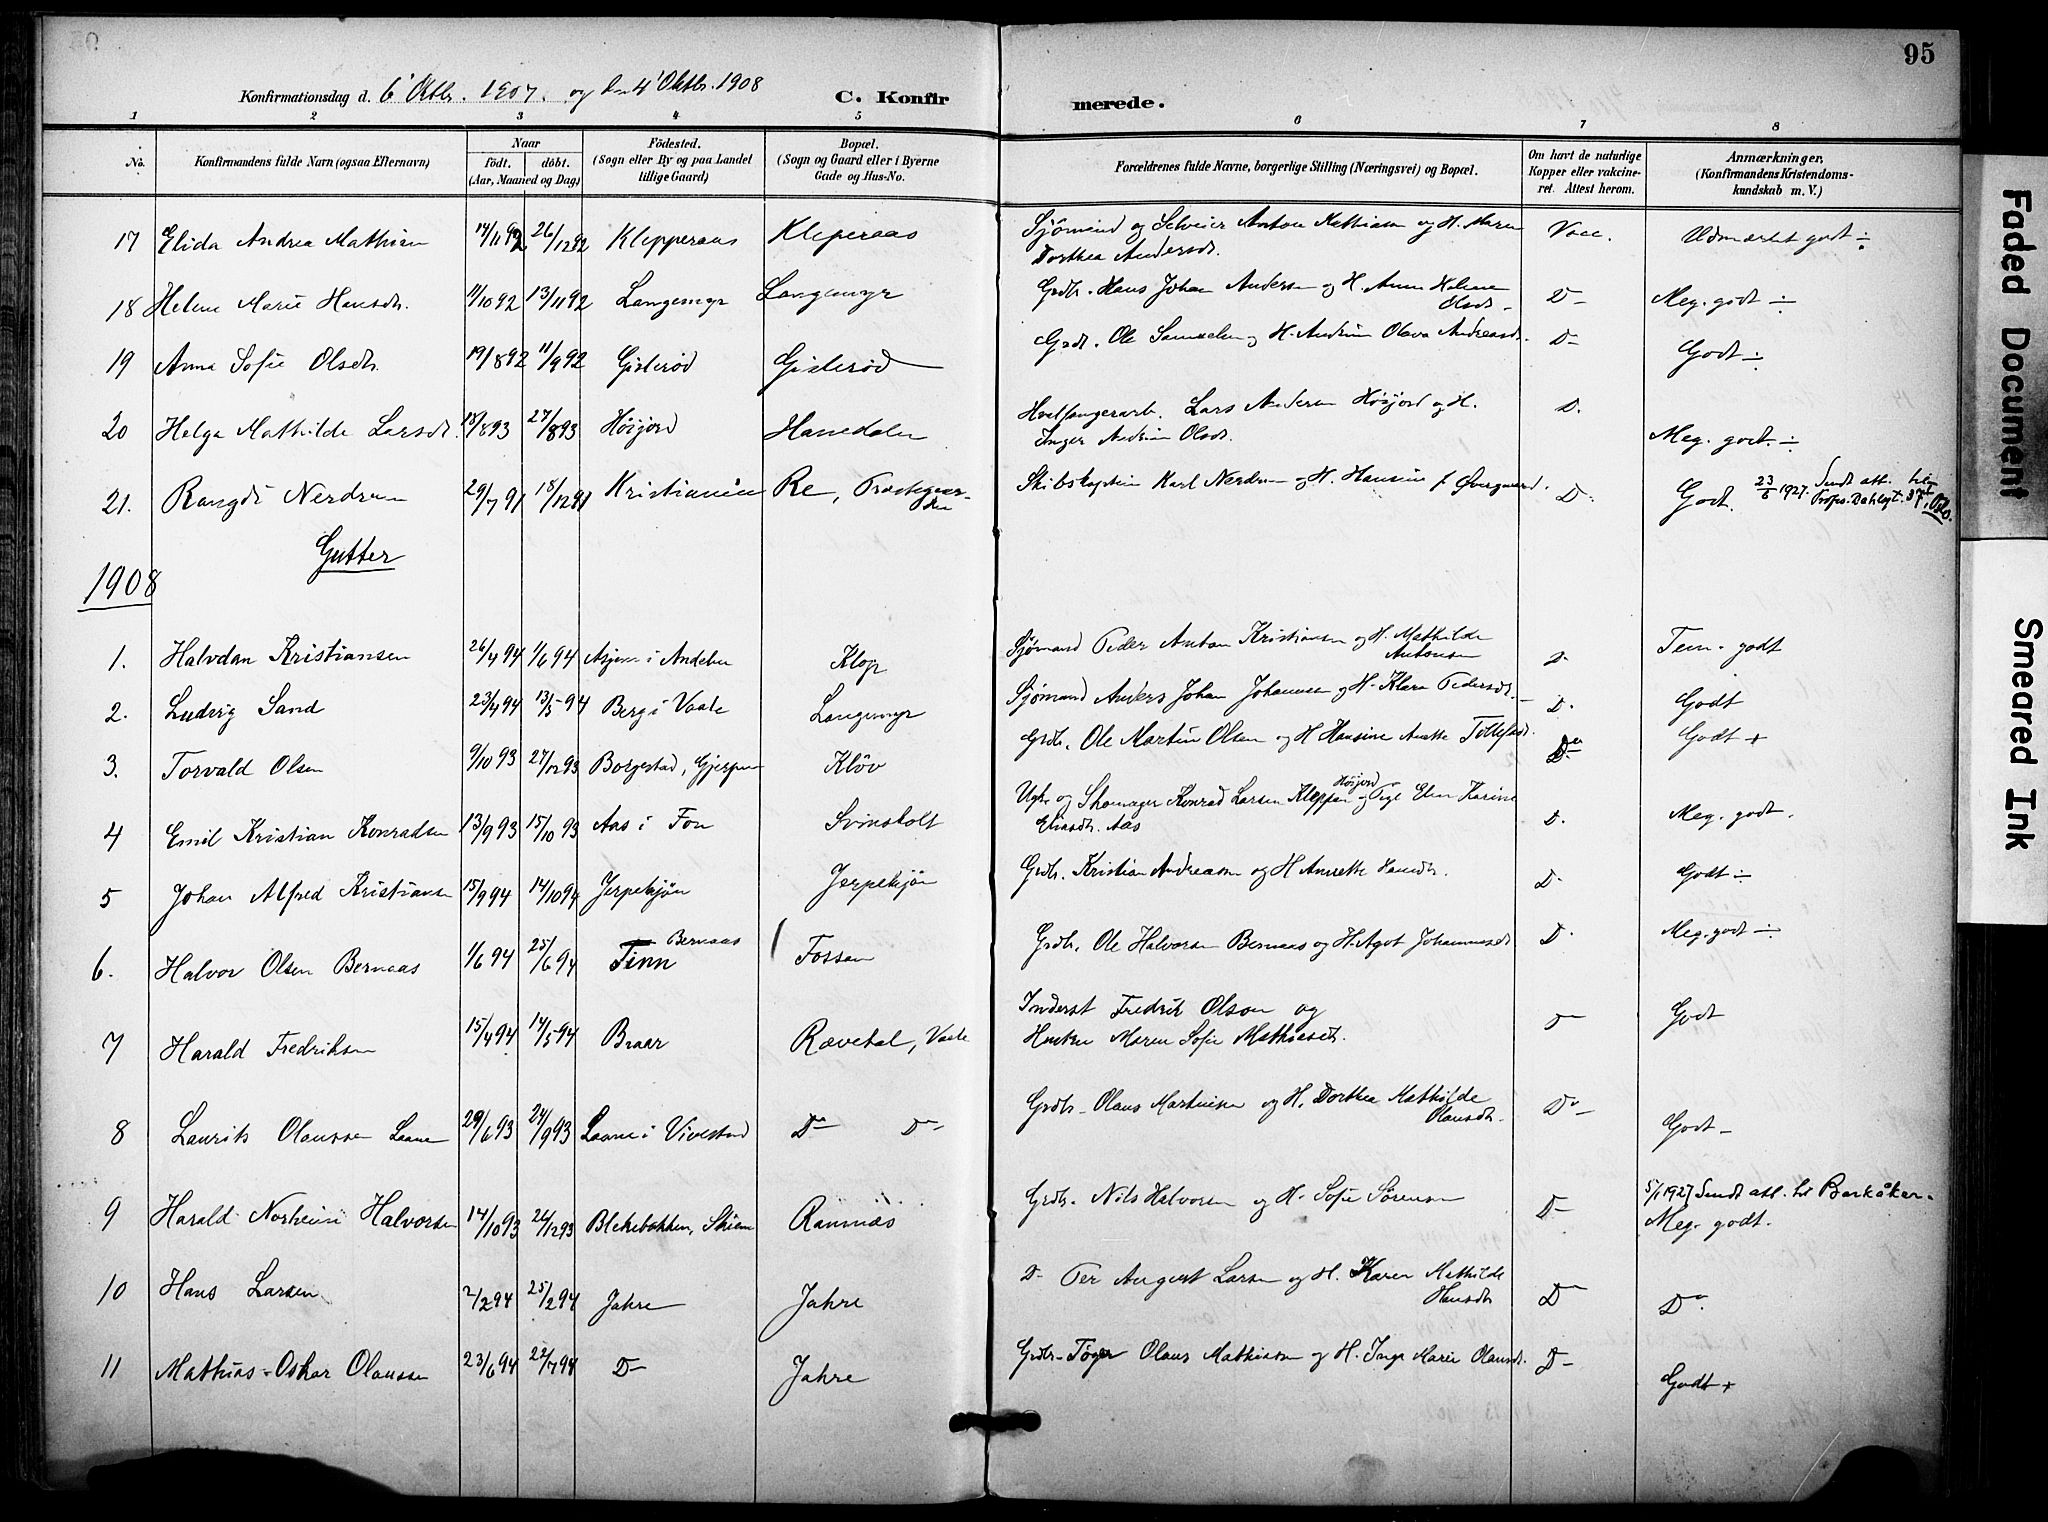 95
Konfirmationsdag d. 6' Oktbr. 1907. og den 4' Oktbr. 1908 C. Konfirmerede.
1 2 3 4 5 6 7 8
No. Konfirmandens fulde Navn (ogsaa Efternavn) Naar födt. döbt. (Aar, Maaned og Dag) Födested. (Sogn eller By og paa Landet tillige Gaard) Bopæl. (Sogn og Gaard eller i Byerne Gade og Hus-No. Forældrenes fulde Navne, borgerlige Stilling (Næringsvei) og Bopæl. Om havt de naturlige Kopper eller vakcineret. Attest herom. Anmærkninger, (Konfirmandens Kristendomskundskab m. V.)
17 Elida Andrea Mathisen 14/11 92 26/12 92 Klepperaas Kleperaas Sjømand og Selveier Anton Mathisen og H. Maren Vacc. Udmærket godt ÷
Dorthea Andersdt.
18 Helene Marie Hansdtr. 11/10 92 13/11 92 Langemyr Langemyr Grdbr. Hans Johan Andersen og H. Anne Helene D- Meg. godt ÷
Olsdt.
19 Anna Sofie Olsdtr. 19/8 92 11/9 92 Gislerød Gislerød Grdb. Ole Samuelsen og H. Andrine Olava Andreasdt. D- Godt ÷
20 Helga Mathilde Larsdt. 15/8 93 27/8 93 Høijord Hanedalen Hvalfangerarb. Lars Andersen Høijord og H. D. Meg. godt. ÷
Inger Andrine Olsdt.
21. Rangdi Nerdrum 29/7 91 18/12 91 Kristiania Re, Prestegaarden Skibskaptein Karl Nerdrum og H. Hansine f. Overgaard. D. Godt. 23/5 1927. Sendt att. til
Profs. Dahlsgt. Oslo.
Gutter
1908
1. Halvdan Kristiansen 26/4 94 1/6 94 i Andebu Klop Sjømand Peder Anton Kristiansen og H. Mathilde D. Tem. godt
Antonsen
2. Ludvig Sand 23/4 94 13/5 94 Berg i Vaale Langemyr Sjømand Anders Johan Johannesen og H. Klara Pedersdt. D. Godt
3. Torvald Olsen 9/10 93 27/12 93 Borgestad, Gjerpen Kløv Grdb. Ole Martin Olsen og H. Hansine Anette Tollefsdt. Do Godt +
4 Emil Kristian Konradsen 13/9 93 15/10 93 Aas i Fon Svinsholt Ugk. og Skomager Konrad Larsen Kleppan Høijord og Pige Elen Karine D. Meg. godt.
Eliasdt. Aas
5 Johan Alfred Kristiansen 15/9 94 14/10 94 Jerpekjøn Jerpekjøn Grdb. Kristian Andreassen og H. Annette Hansdtr. D. Godt ÷
6. Halvor Olsen Bernaas 1/6 94 25/6 94 Tinn Bernaas Fossan Grdb. Ole Halvorsen Bernaas og H. Agot Johannesdt. D. Meg. godt ÷
7 Harald Fredriksen 15/4 94 14/5 94 Braar Rævetal, Vaale Inderst Fredrik Olsen og D- Godt
Hustru Maren Sofie Mathiasdt.
8 Laurits Olaussen Laane 29/6 93 24/9 93 Laane i Vivestad Do Do Grdb. Olaus Martinsen og H. Dorthea Mathilde Do Godt
Olausdt.
9 Harald Norheim Halvorsen 14/10 93 26/12 93 Blekebakken, Skien Ramnæs Grdb. Nils Halvorsen og H. Sofie Sørensen D- 5/1 1927 Sendt att. til Barkåker.
Meg. godt.
10 Hans Larsen 2/2 94 25/2 94 Jahre Jahre D- Per August Larsen og H. Karen Mathilde Do Do.
Hansdt.
11 Mathias Oskar Olaussen 23/6 94 22/7 94 D- Jahre Grdb. Olaus Mathiassen og H. Inga Marie Olausdt. D- Godt +
Faded Document
Smeared Ink